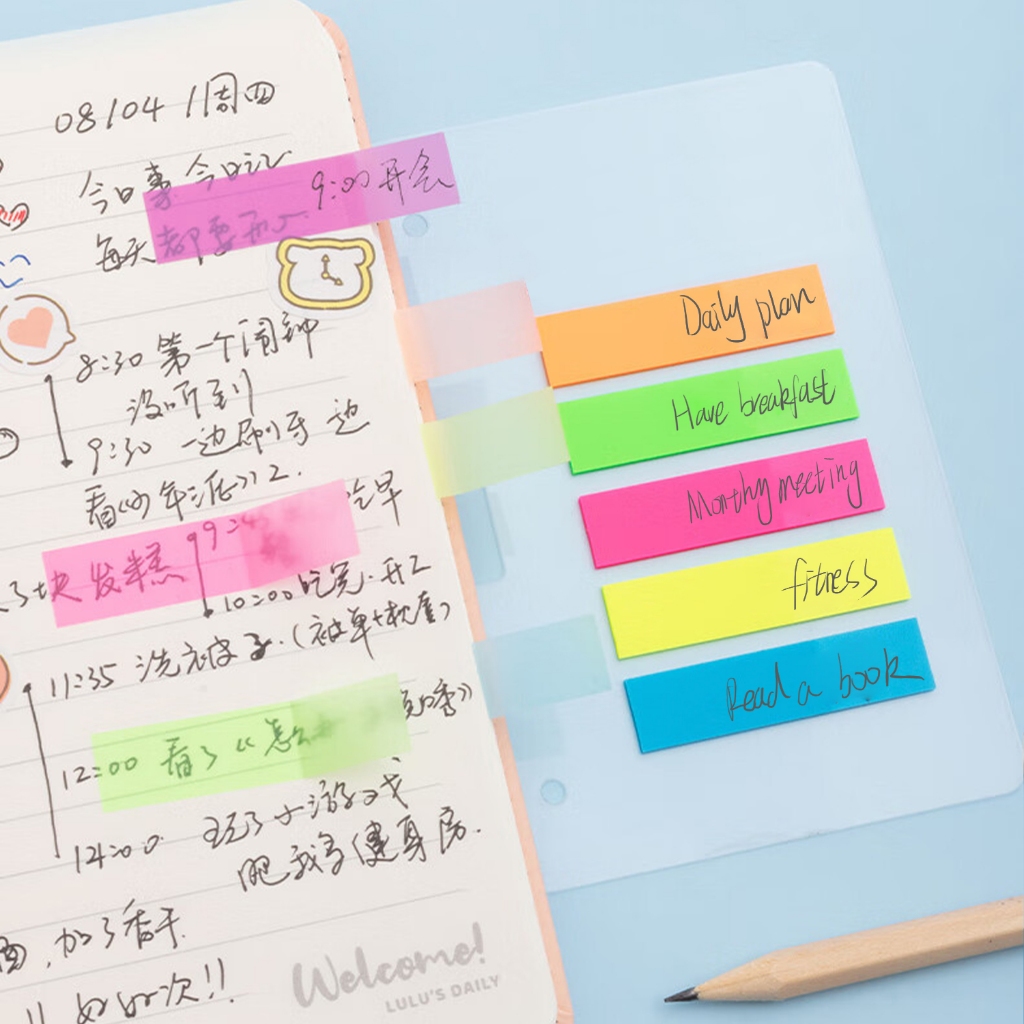 08/04 /周四
今日事 今日记
9:00 开会
每天都要开心
8:30 第一个闹钟
没听到
9:30 一边刷牙 边
看《少年派》2.
9:4 吃早
块发糕
10:00 吃完.开工
11:35 洗被子.(被单+枕套)
12:00 看了《怎么
14:00 玩了小游戏
肥我了健身房.
,加了香干
!! 好好次!!
Welcome!
LULU'S DAILY
Daily plan
Have breakfast
Monthy meeting
fitness
Read a book